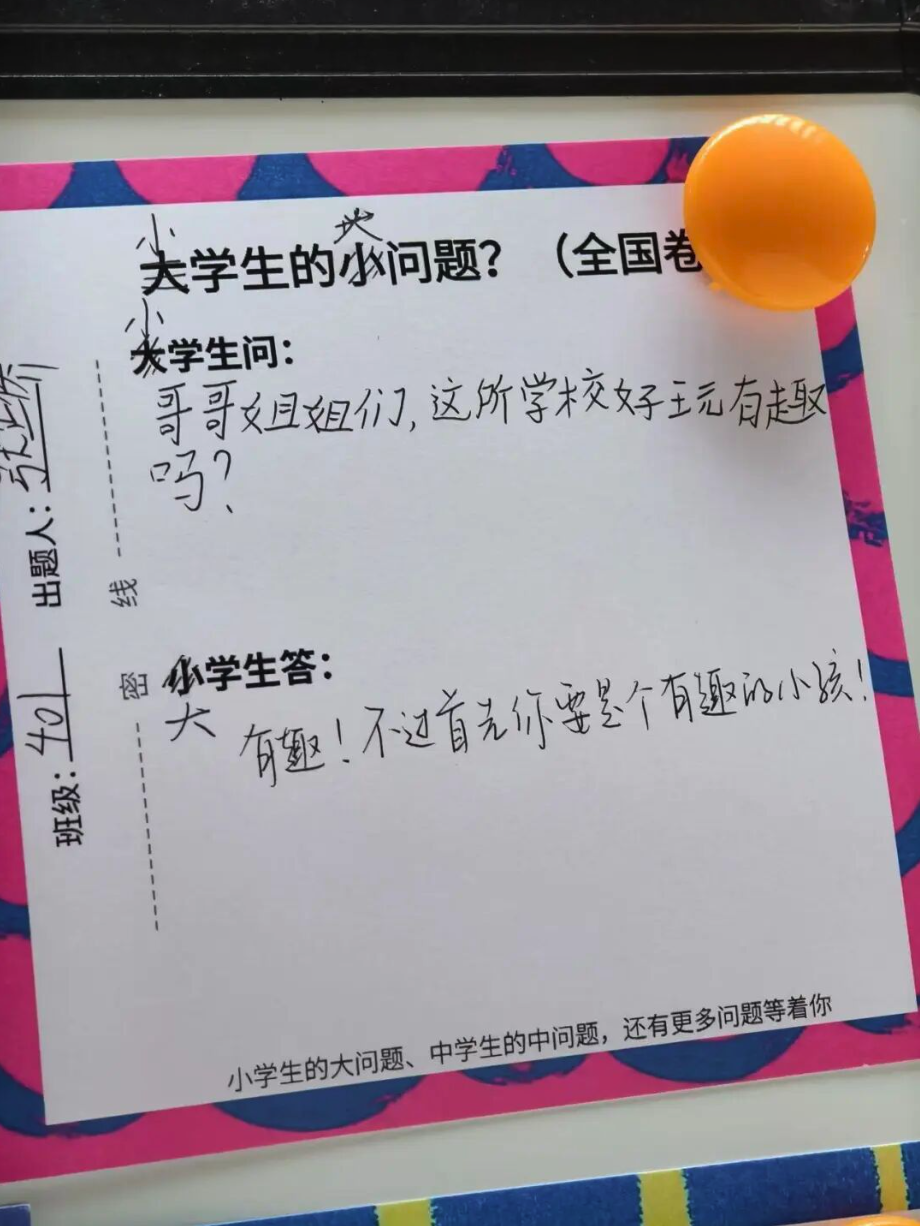 小 大
大学生的小问题？（全国卷
小
大学生问：
哥哥姐姐们，这所学校好玩有趣
吗？
小学生答：
大
有趣！不过首先你要是个有趣的小孩！
小学生的大问题、中学生的中问题，还有更多问题等着你
班级：401 出题人：
密 线